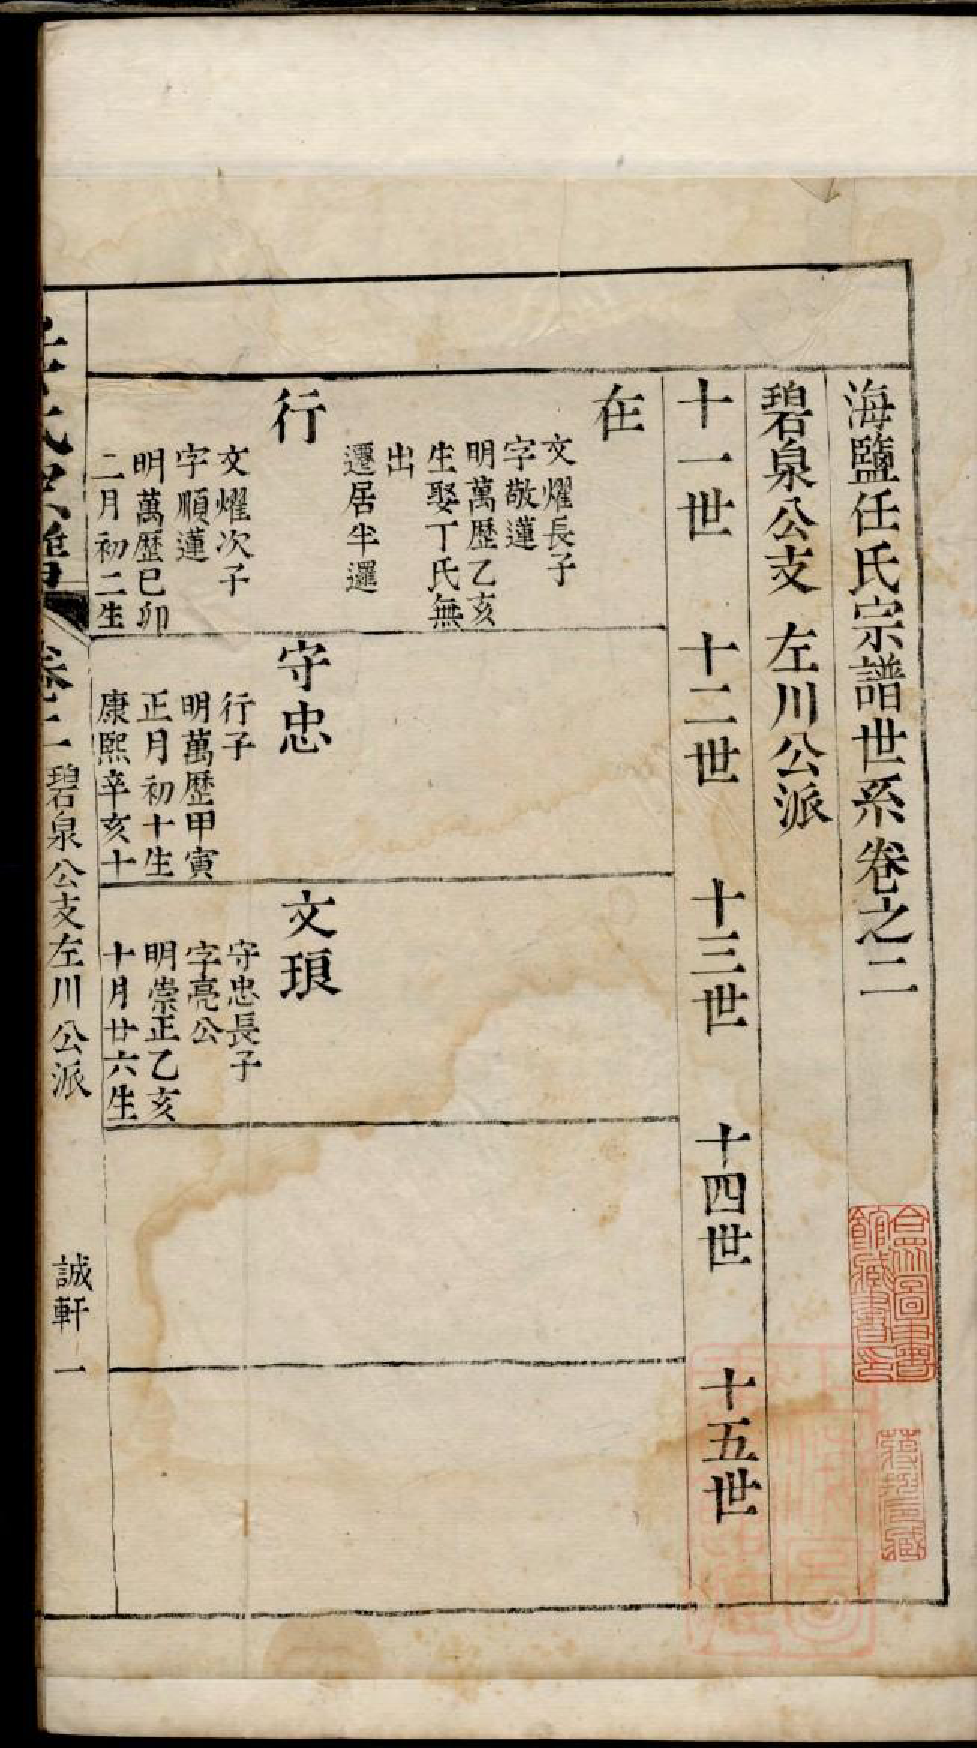 海鹽任氏宗譜世系卷之二
碧泉公支 左川公派
十一世 十二世 十三世 十四世 十五世
在
文燿長子
字敬蓮
明萬歷乙亥
生娶丁氏無
出
遷居半邏
行
文燿次子
字順蓮
明萬歷己卯
二月初二生
守忠
行子
明萬歷甲寅
正月初十生
康熙辛亥十
文琅
守忠長子
字亮公
明崇正乙亥
十月廿六生
任氏宗譜 卷二 碧泉公支左川公派 誠軒 一
圖書
館藏書